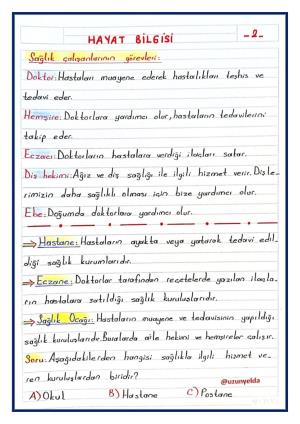 HAYAT BİLGİSİ
-2-
Sağlık çalışanlarının görevleri:
Doktor: Hastaları muayene ederek hastalıkları teşhis ve
tedavi eder.
Hemşire: Doktorlara yardımcı olur, hastaların tedavilerini
takip eder.
Eczacı: Doktorların hastalara verdiği ilaçları satar.
Diş hekimi: Ağız ve diş sağlığı ile ilgili hizmet verir. Dişle-
rimizin daha sağlıklı olması için bize yardımcı olur.
Ebe: Doğumda doktorlara yardımcı olur.
⇒ Hastane: Hastaların ayakta veya yatarak tedavi edil-
diği sağlık kurumlarıdır.
⇒ Eczane: Doktorlar tarafından reçetelerde yazılan ilaçla-
rın hastalara satıldığı sağlık kuruluşlarıdır.
⇒ Sağlık Ocağı: Hastaların muayene ve tedavisinin yapıldığı
sağlık kuruluşlarıdır. Buralarda aile hekimi ve hemşireler çalışır.
Soru: Aşağıdakilerden hangisi sağlıkla ilgili hizmet ve-
ren kuruluşlardan biridir?
@uzunyelda
A) Okul B) Hastane C) Postane